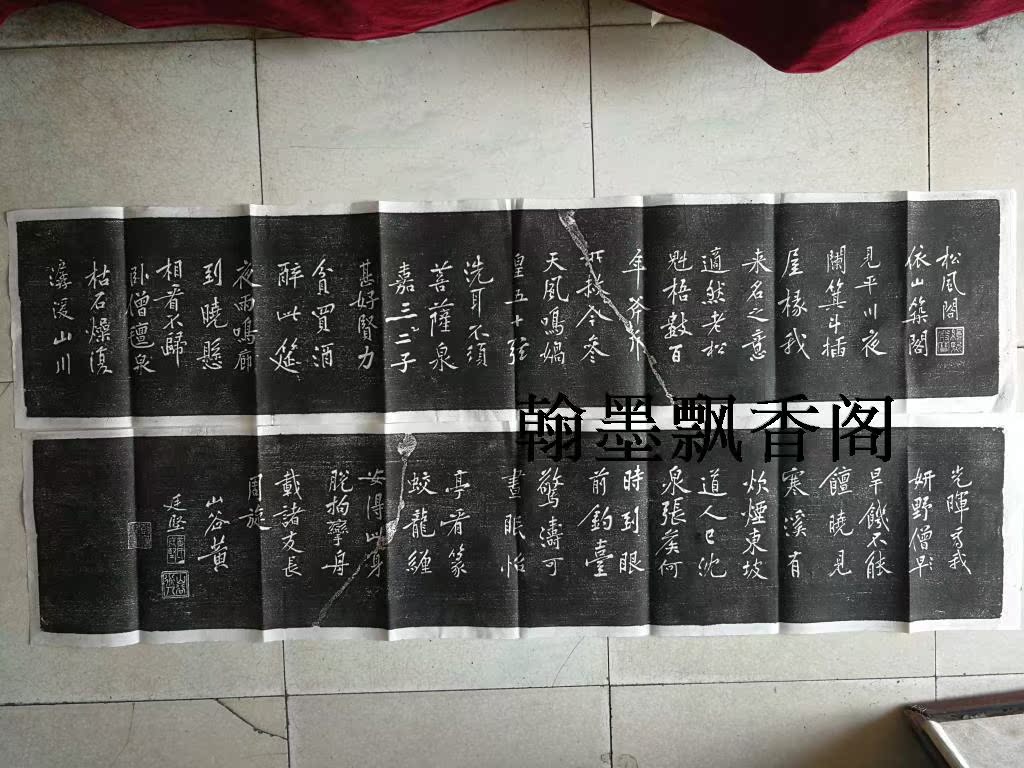 松風閣
依山築閣
見平川夜
闌箕斗插
屋椽我
来名之意
適然老松
魁梧數百
年斧斤
所赦今参
天風鳴媧
皇五十弦
洗耳不須
菩薩泉
嘉三二子
甚好賢力
貧買酒
醉此筵
夜雨鳴廊
到曉懸
相看不歸
卧僧氊泉
枯石燥復
潺湲山川
光暉為我
妍野僧早
旱饑不能
饘曉見
寒溪有
炊煙東坡
道人已沈
泉張侯何
時到眼
前釣臺
驚濤可
晝眠怡
亭看篆
蛟龍纏
安得此身
脫拘攣舟
載諸友長
周旋
山谷黃
廷堅
翰墨飘香阁